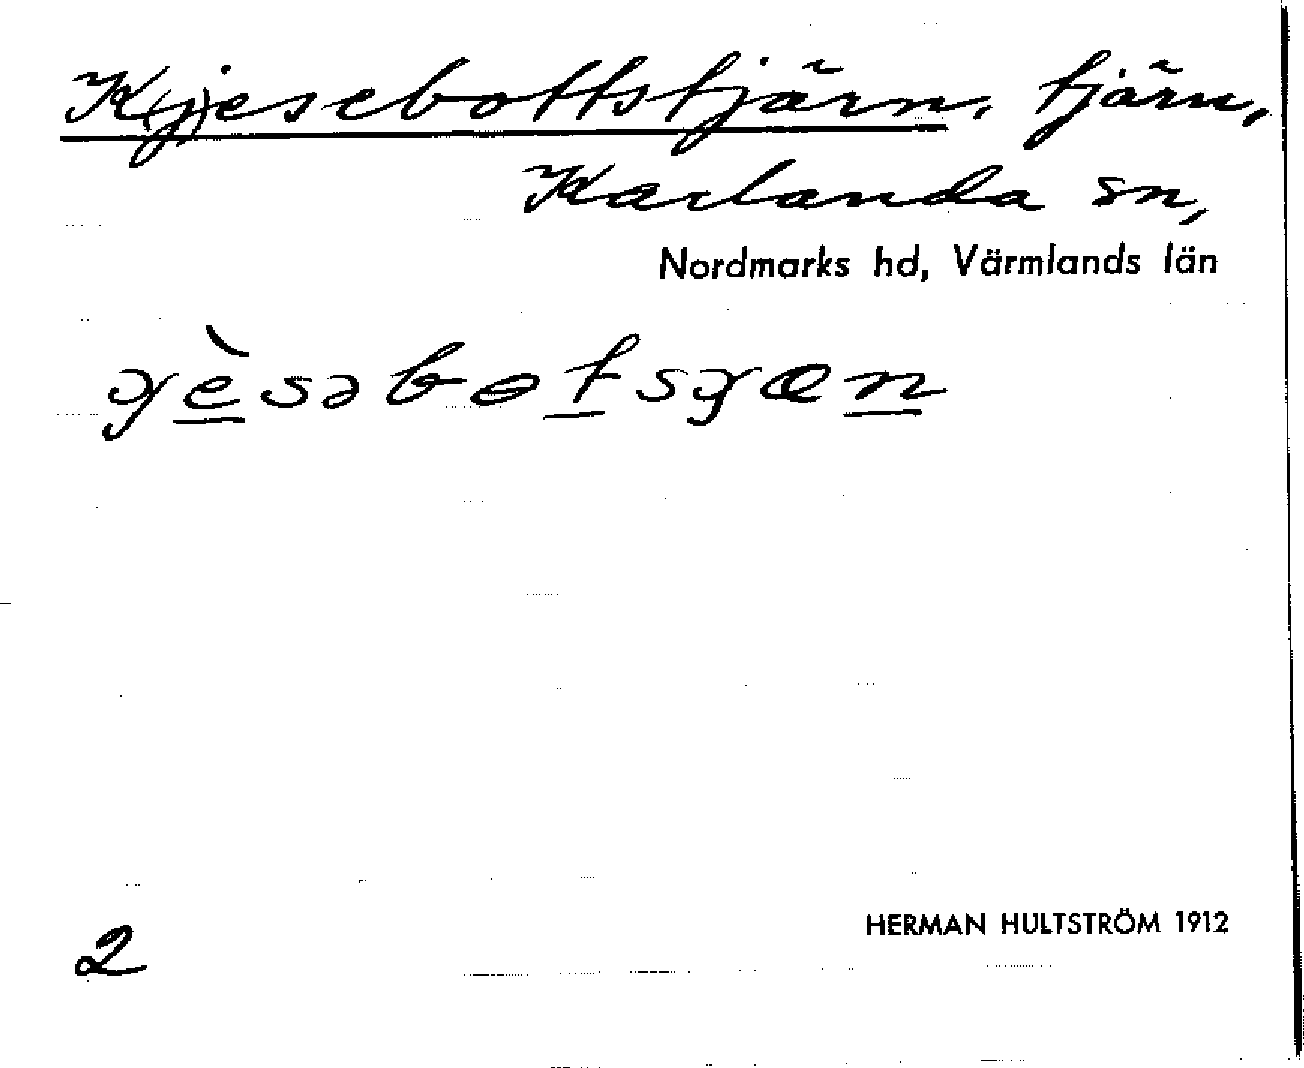 K(j)esebottstjärn, tjärn,
Karlanda sn,
Nordmarks hd, Värmlands län
ɣèsəbɵtsɣæn
HERMAN HULTSTRÖM 1912
2